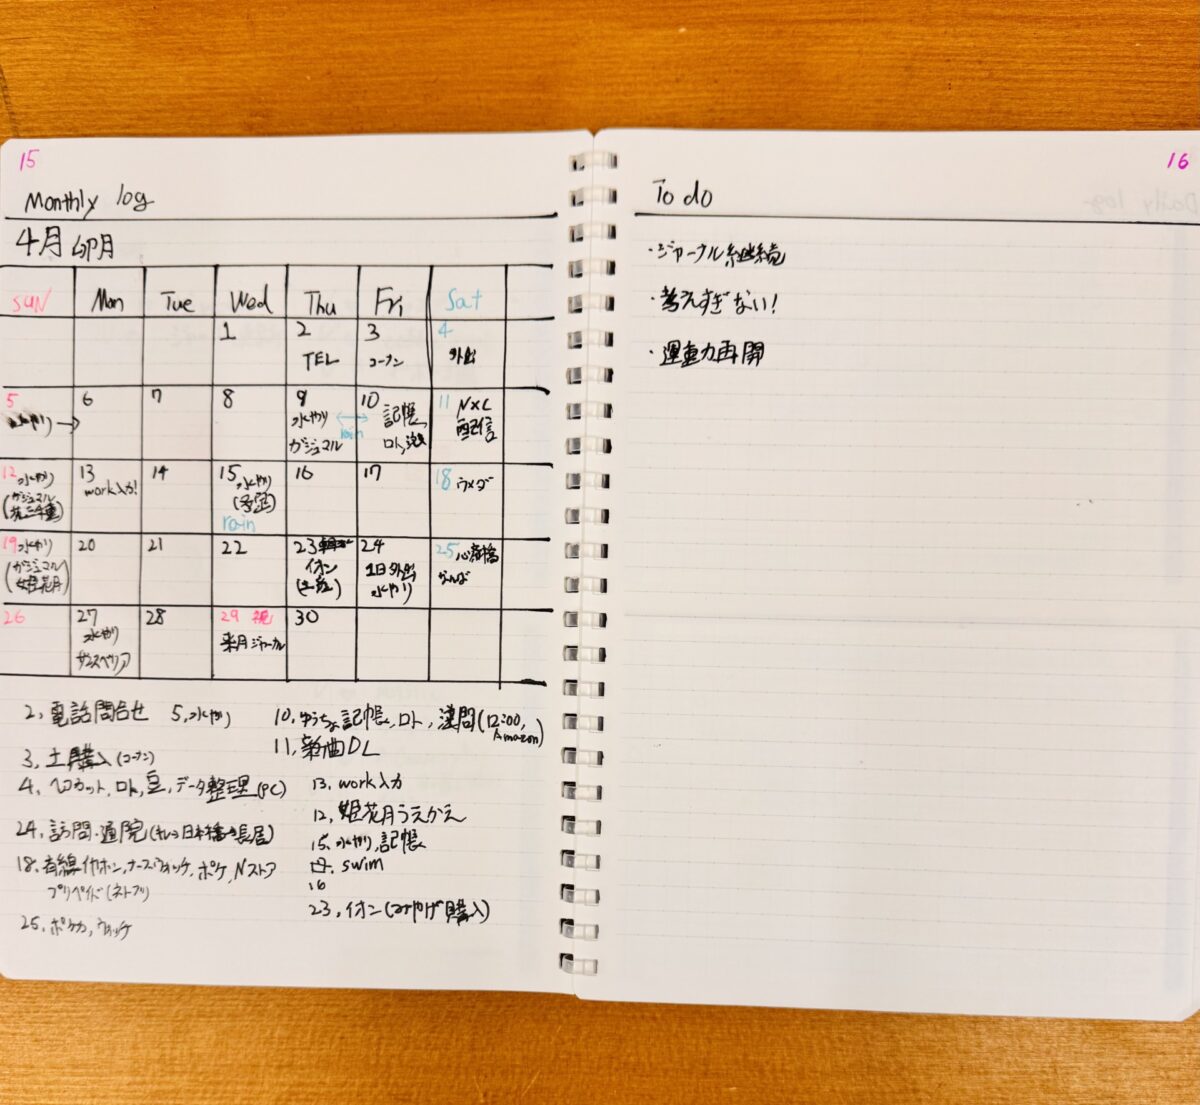 15
Monthly log
4月 卯月
SUN Mon Tue Wed Thu Fri Sat
1 2 3 4
TEL コーナン 外出
5 6 7 8 9 10 11
水やり→ 水やり 記帳、 N×L
ガジュマル rain ロト, 配信
12 水やり 13 14 15 水やり 16 17 18 ウメダ
(ガジュマル work入力!
rain
19 水やり 20 21 22 23 24 25 心斎橋
(ガジュマル イオン 1日外出 なんば
姫花月) 水やり
26 27 28 29 祝 30
水やり 来月ジャーナル
サンスベリア
2, 電話問合せ 5, 水やり
3, 土購入(コーナン)
4, ヘアカット, ロト, 豆, データ整理(PC)
24, 訪問・通院( 日本橋→長居)
18, 有線イヤホン, ナースウォッチ, ポケ, Nストア
プリペイド(ネトフリ)
25, ポケカ, ウォッチ
10, ゆうちょ記帳, ロト, 漢問(12:00, Amazon)
11, 新曲DL
13, work入力
12, 姫花月うえかえ
15, 水やり, 記帳
swim
16
23, イオン(みやげ購入)
16
To do
・ジャーナル継続
・考えすぎない!
・運動再開